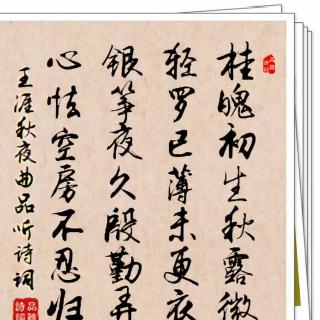 桂魄初生秋露微
轻罗已薄未更衣
银筝夜久殷勤弄
心怯空房不忍归
王涯秋夜曲品听诗词
品聽
詩詞